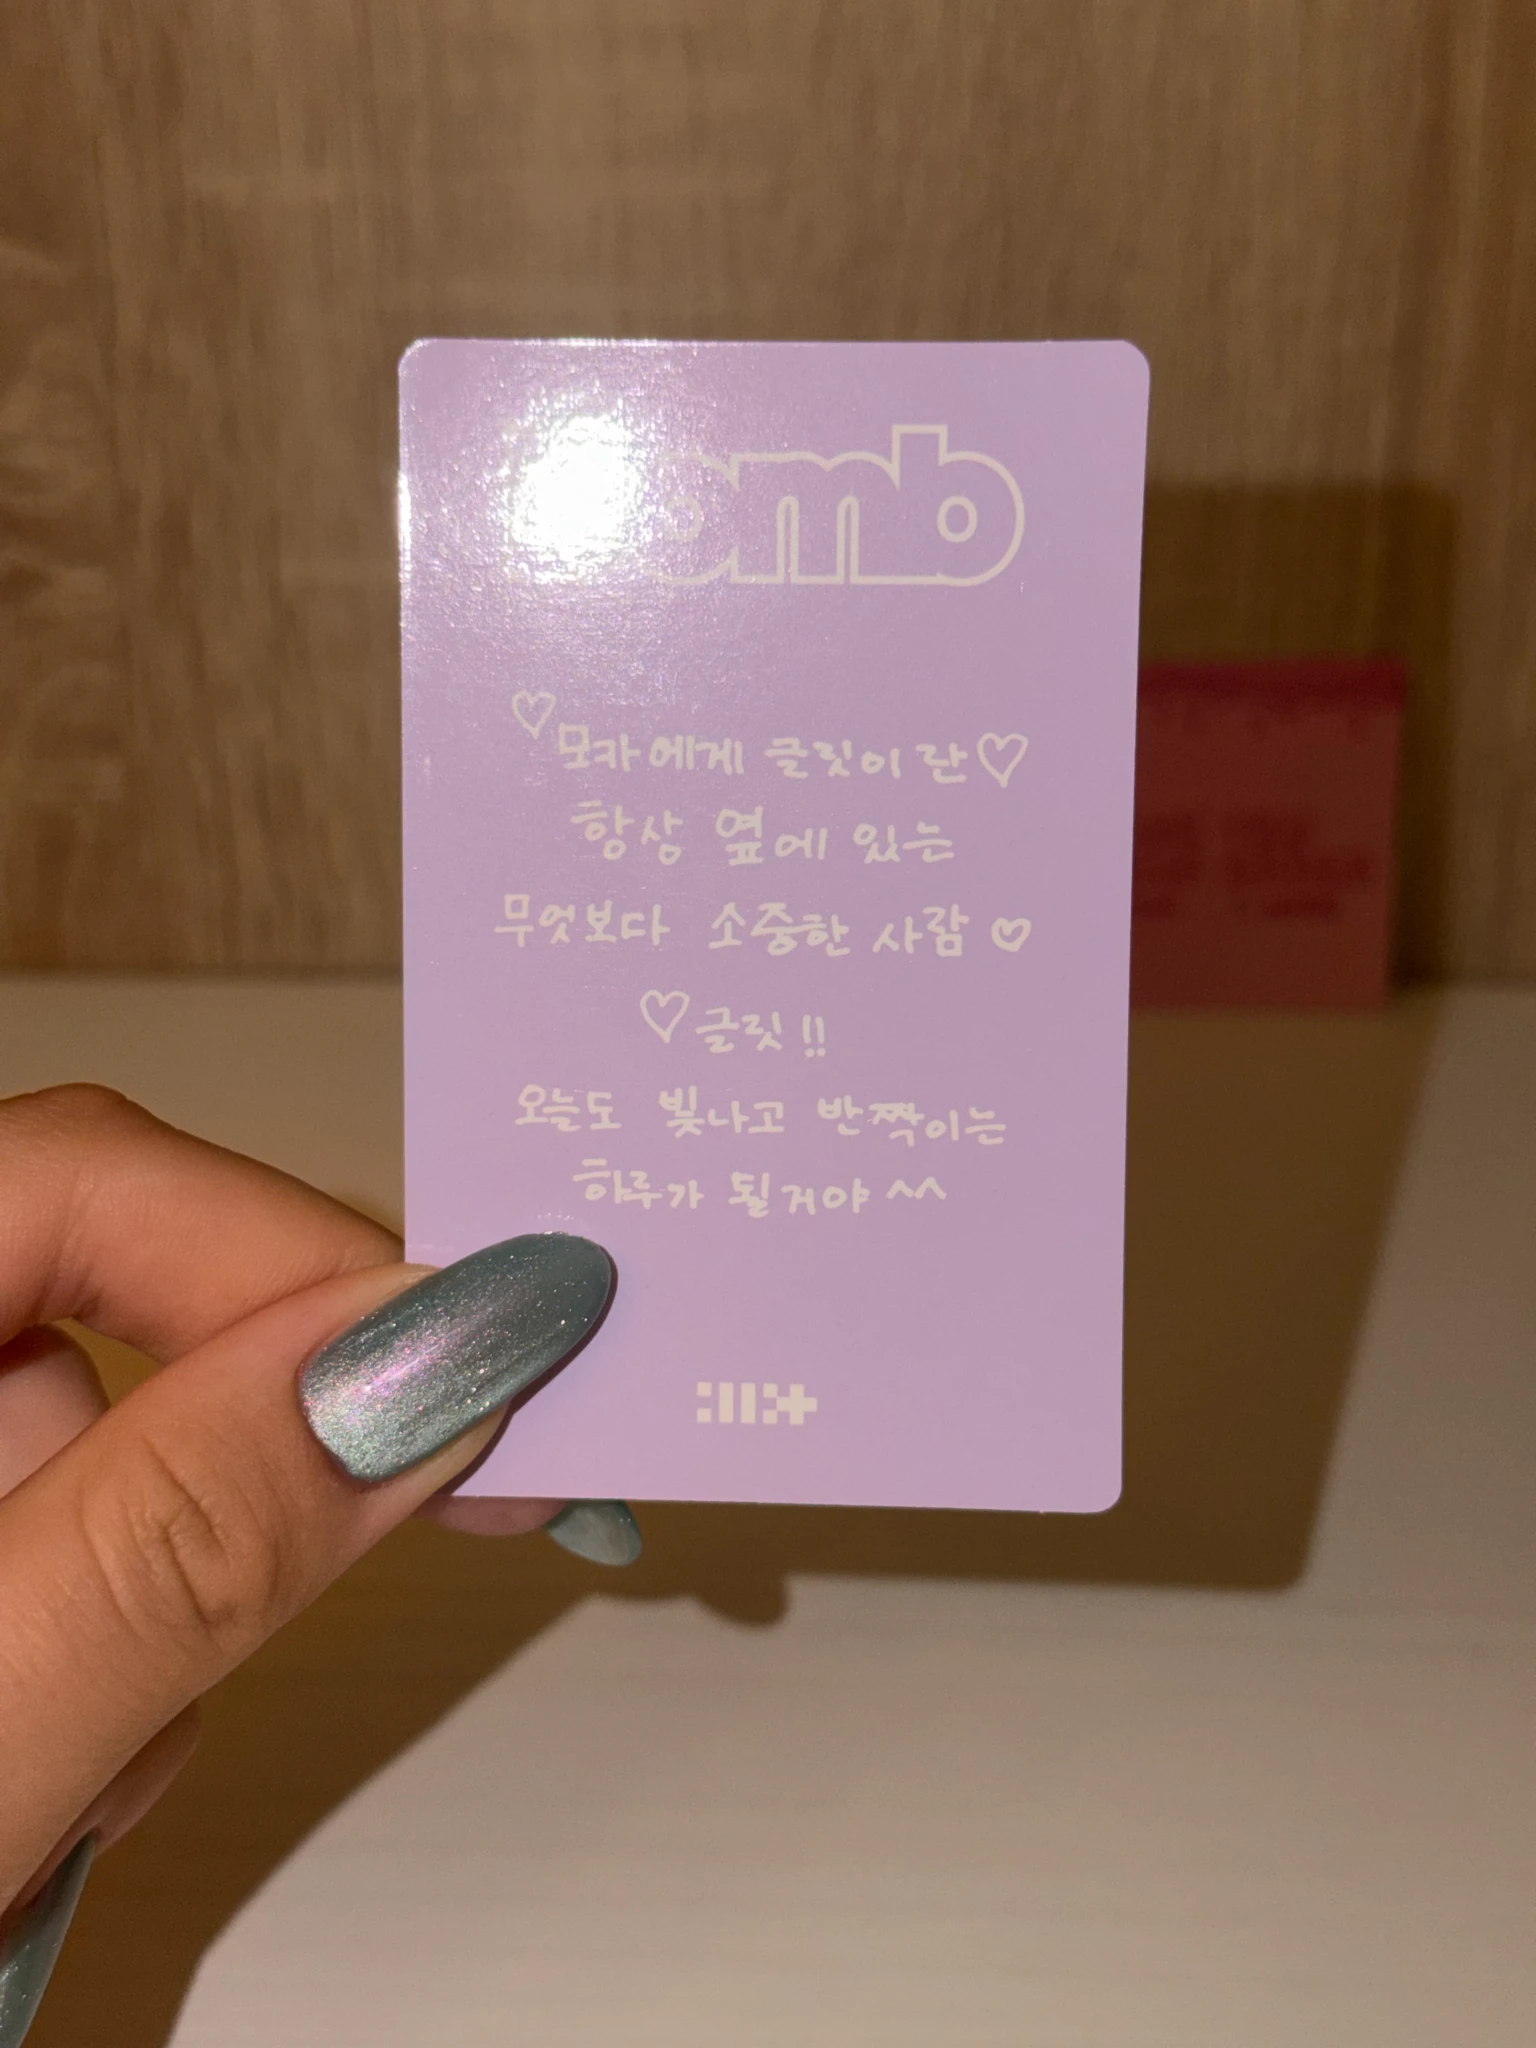 omb
모카에게 글릿이란
항상 옆에 있는
무엇보다 소중한 사람
글릿!!
오늘도 빛나고 반짝이는
하루가 될거야 ^^